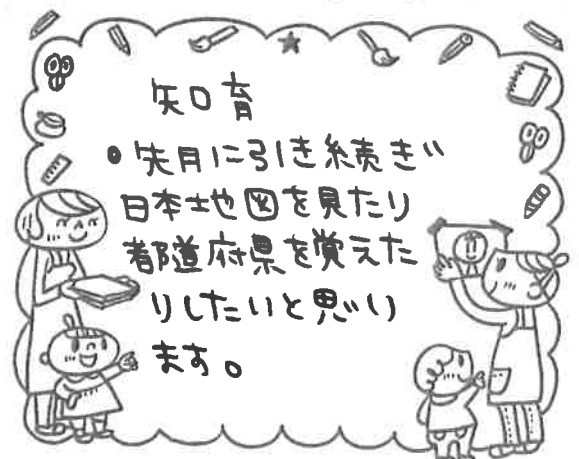 知育
•先月に引き続き
日本地図を見たり
都道府県を覚えた
りしたいと思い
ます。